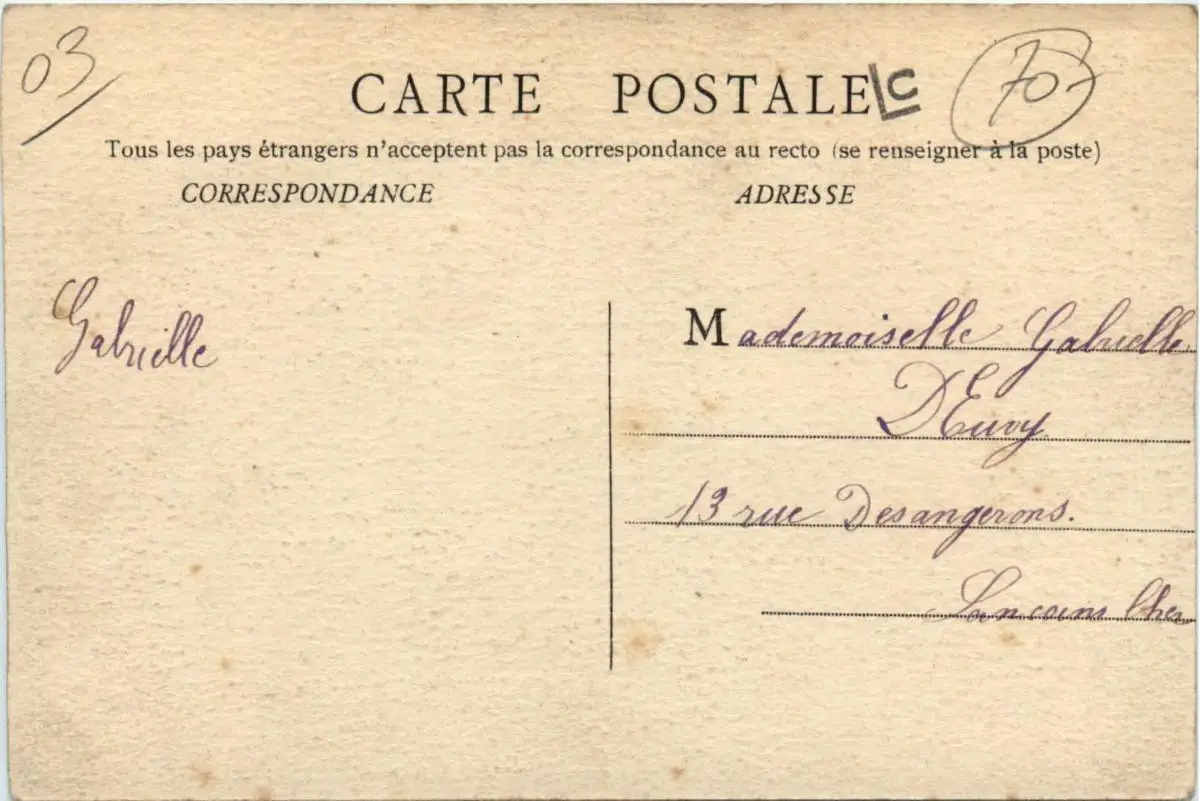 03
CARTE POSTALE LC 70-
Tous les pays étrangers n'acceptent pas la correspondance au recto (se renseigner à la poste)
CORRESPONDANCE
ADRESSE
Gabrielle
Mademoiselle Gabrielle
13 rue Desangerons.
Sancoins Cher